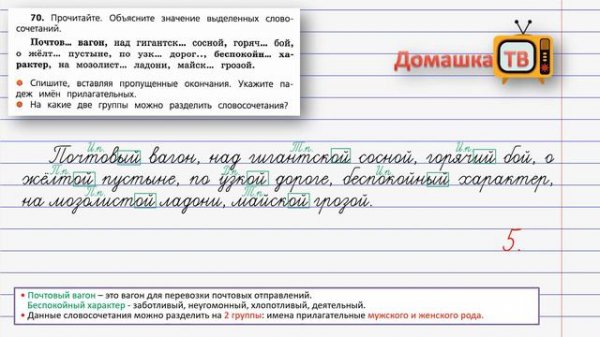 70. Прочитайте. Объясните значение выделенных слово-
сочетаний.
Почтов... вагон, над гигантск... сосной, горяч... бой,
о жёлт... пустыне, по узк... дорог.., беспокойн... ха-
рактер, на мозолист... ладони, майск... грозой.
Спишите, вставляя пропущенные окончания. Укажите па-
деж имён прилагательных.
На какие две группы можно разделить словосочетания?
Домашка ТВ
И.п. Т.п. И.п.
Почтовый вагон, над гигантской сосной, горячий бой, о
П.п. Д.п. И.п.
жёлтой пустыне, по узкой дороге, беспокойный характер,
П.п. Т.п.
на мозолистой ладони, майской грозой.
5.
• Почтовый вагон – это вагон для перевозки почтовых отправлений.
Беспокойный характер - заботливый, неугомонный, хлопотливый, деятельный.
• Данные словосочетания можно разделить на 2 группы: имена прилагательные мужского и женского рода.